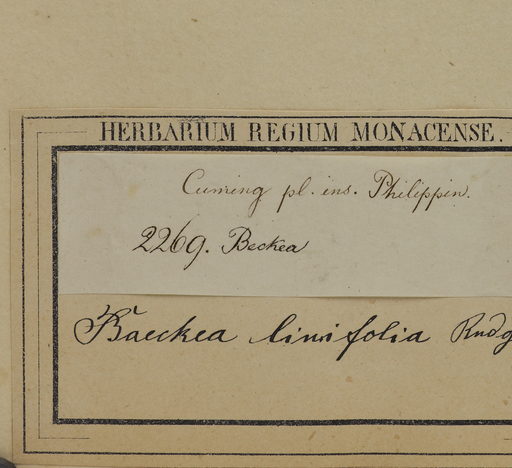 HERBARIUM REGIUM MONACENSE.
Cuming pl. ins. Philippin.
2269. Beckea
Baeckea linifolia Rudg